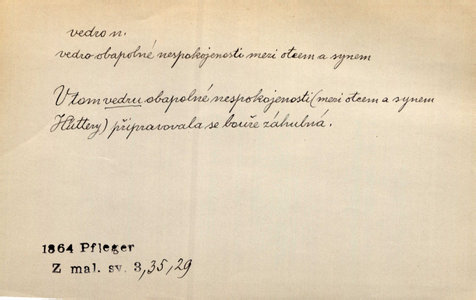 vedro n.
vedro obapolné nespokojenosti mezi otcem a synem
V tom vedru obapolné nespokojenosti (mezi otcem a synem
Hüttery) připravovala se bouře záhubná.
1864 Pfleger
Z mal. sv. 3,35,29